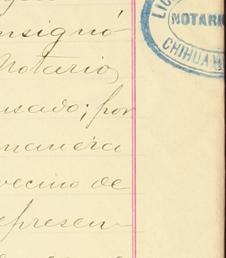 nsignó
Notario
LIC
NOTARI
CHIHUAH
usado; por
manera
vecino de
represen-